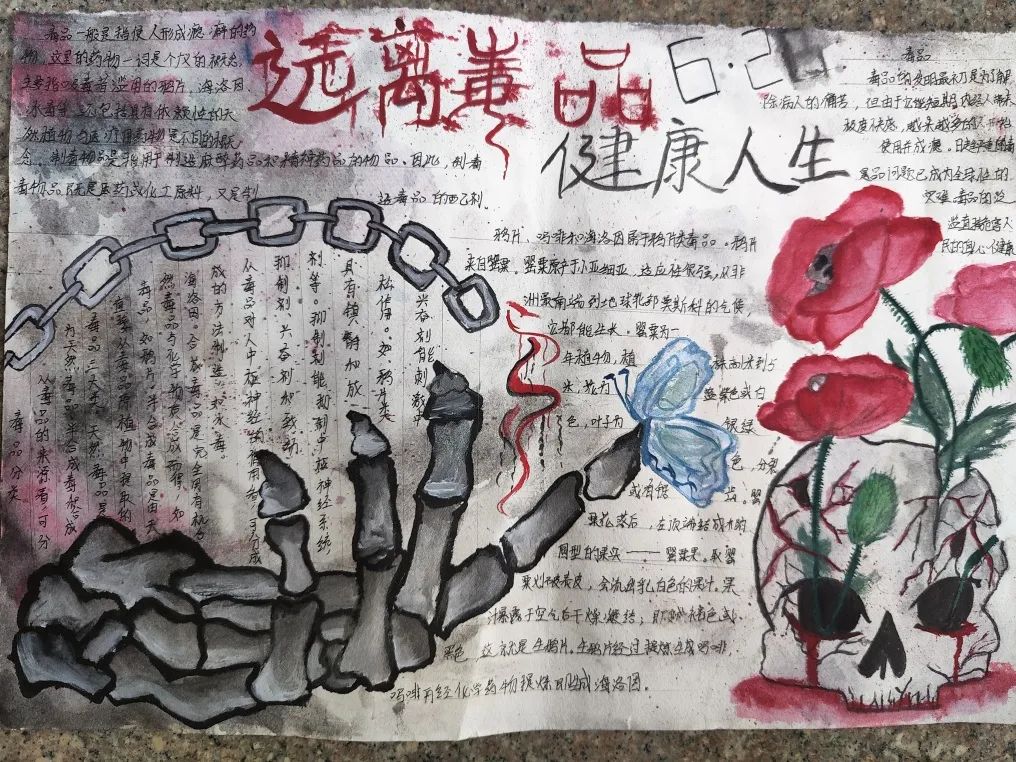 远离毒品
6·26
健康人生
毒品一般是指使人形成瘾癖的药
物，这里的药物一词是个广的概念，
主要指吸毒者滥用的鸦片、海洛因、
冰毒等，还包括具有依赖性的天
然植物
念，制毒物品是指用于制造麻醉药品和精神药品的物品、因此，制毒
毒物品既是医药或化工原料，又是制
造毒品的
毒品
毒品的发明最初是为了解
除病人的痛苦，但由于它能短期内给人带来
极度快感，越来越多的人开始
使用并成瘾。日趋严重的毒
品问题已成为全球性的
灾难，毒品的泛
滥直接危害人
民的身心健康
鸦片、吗啡和海洛因属于鸦片类毒品。鸦片
来自罂粟，罂粟原产于小亚细亚，适应性很强，从非
洲最南端到地球北部莫斯科的气候，
它都能生长。罂粟为一
年植物，植株高1米到1.5
米，花为
色，叶子为银绿
色，分裂
或有锯齿。罂
粟花落后，在
圆型的果实——罂粟果。取罂
粟划破表皮，会流出乳白色的果汁。果
汁暴露于空气后干燥凝结，
黑色，这就是生鸦片。生鸦片经过提炼生成吗啡，
吗啡再经化学药物提炼即成海洛因。
毒品分类
从毒品的来源看，可分
为天然毒品、半合成毒品和合成
毒品三大类。天然毒品是
直接从毒品原植物中提取的
毒品，如鸦片，半合成毒品是由天
然毒品与化学物质合成而得，如
海洛因。合成毒品是完全用有机合
成的方法制造，如冰毒。
从毒品对人中枢神经的作用看，可分成
抑制剂、兴奋剂和致幻
剂等。抑制剂能抑制中枢神经系统，
具有镇静和放
松作用。如鸦片类
兴奋剂能刺激中